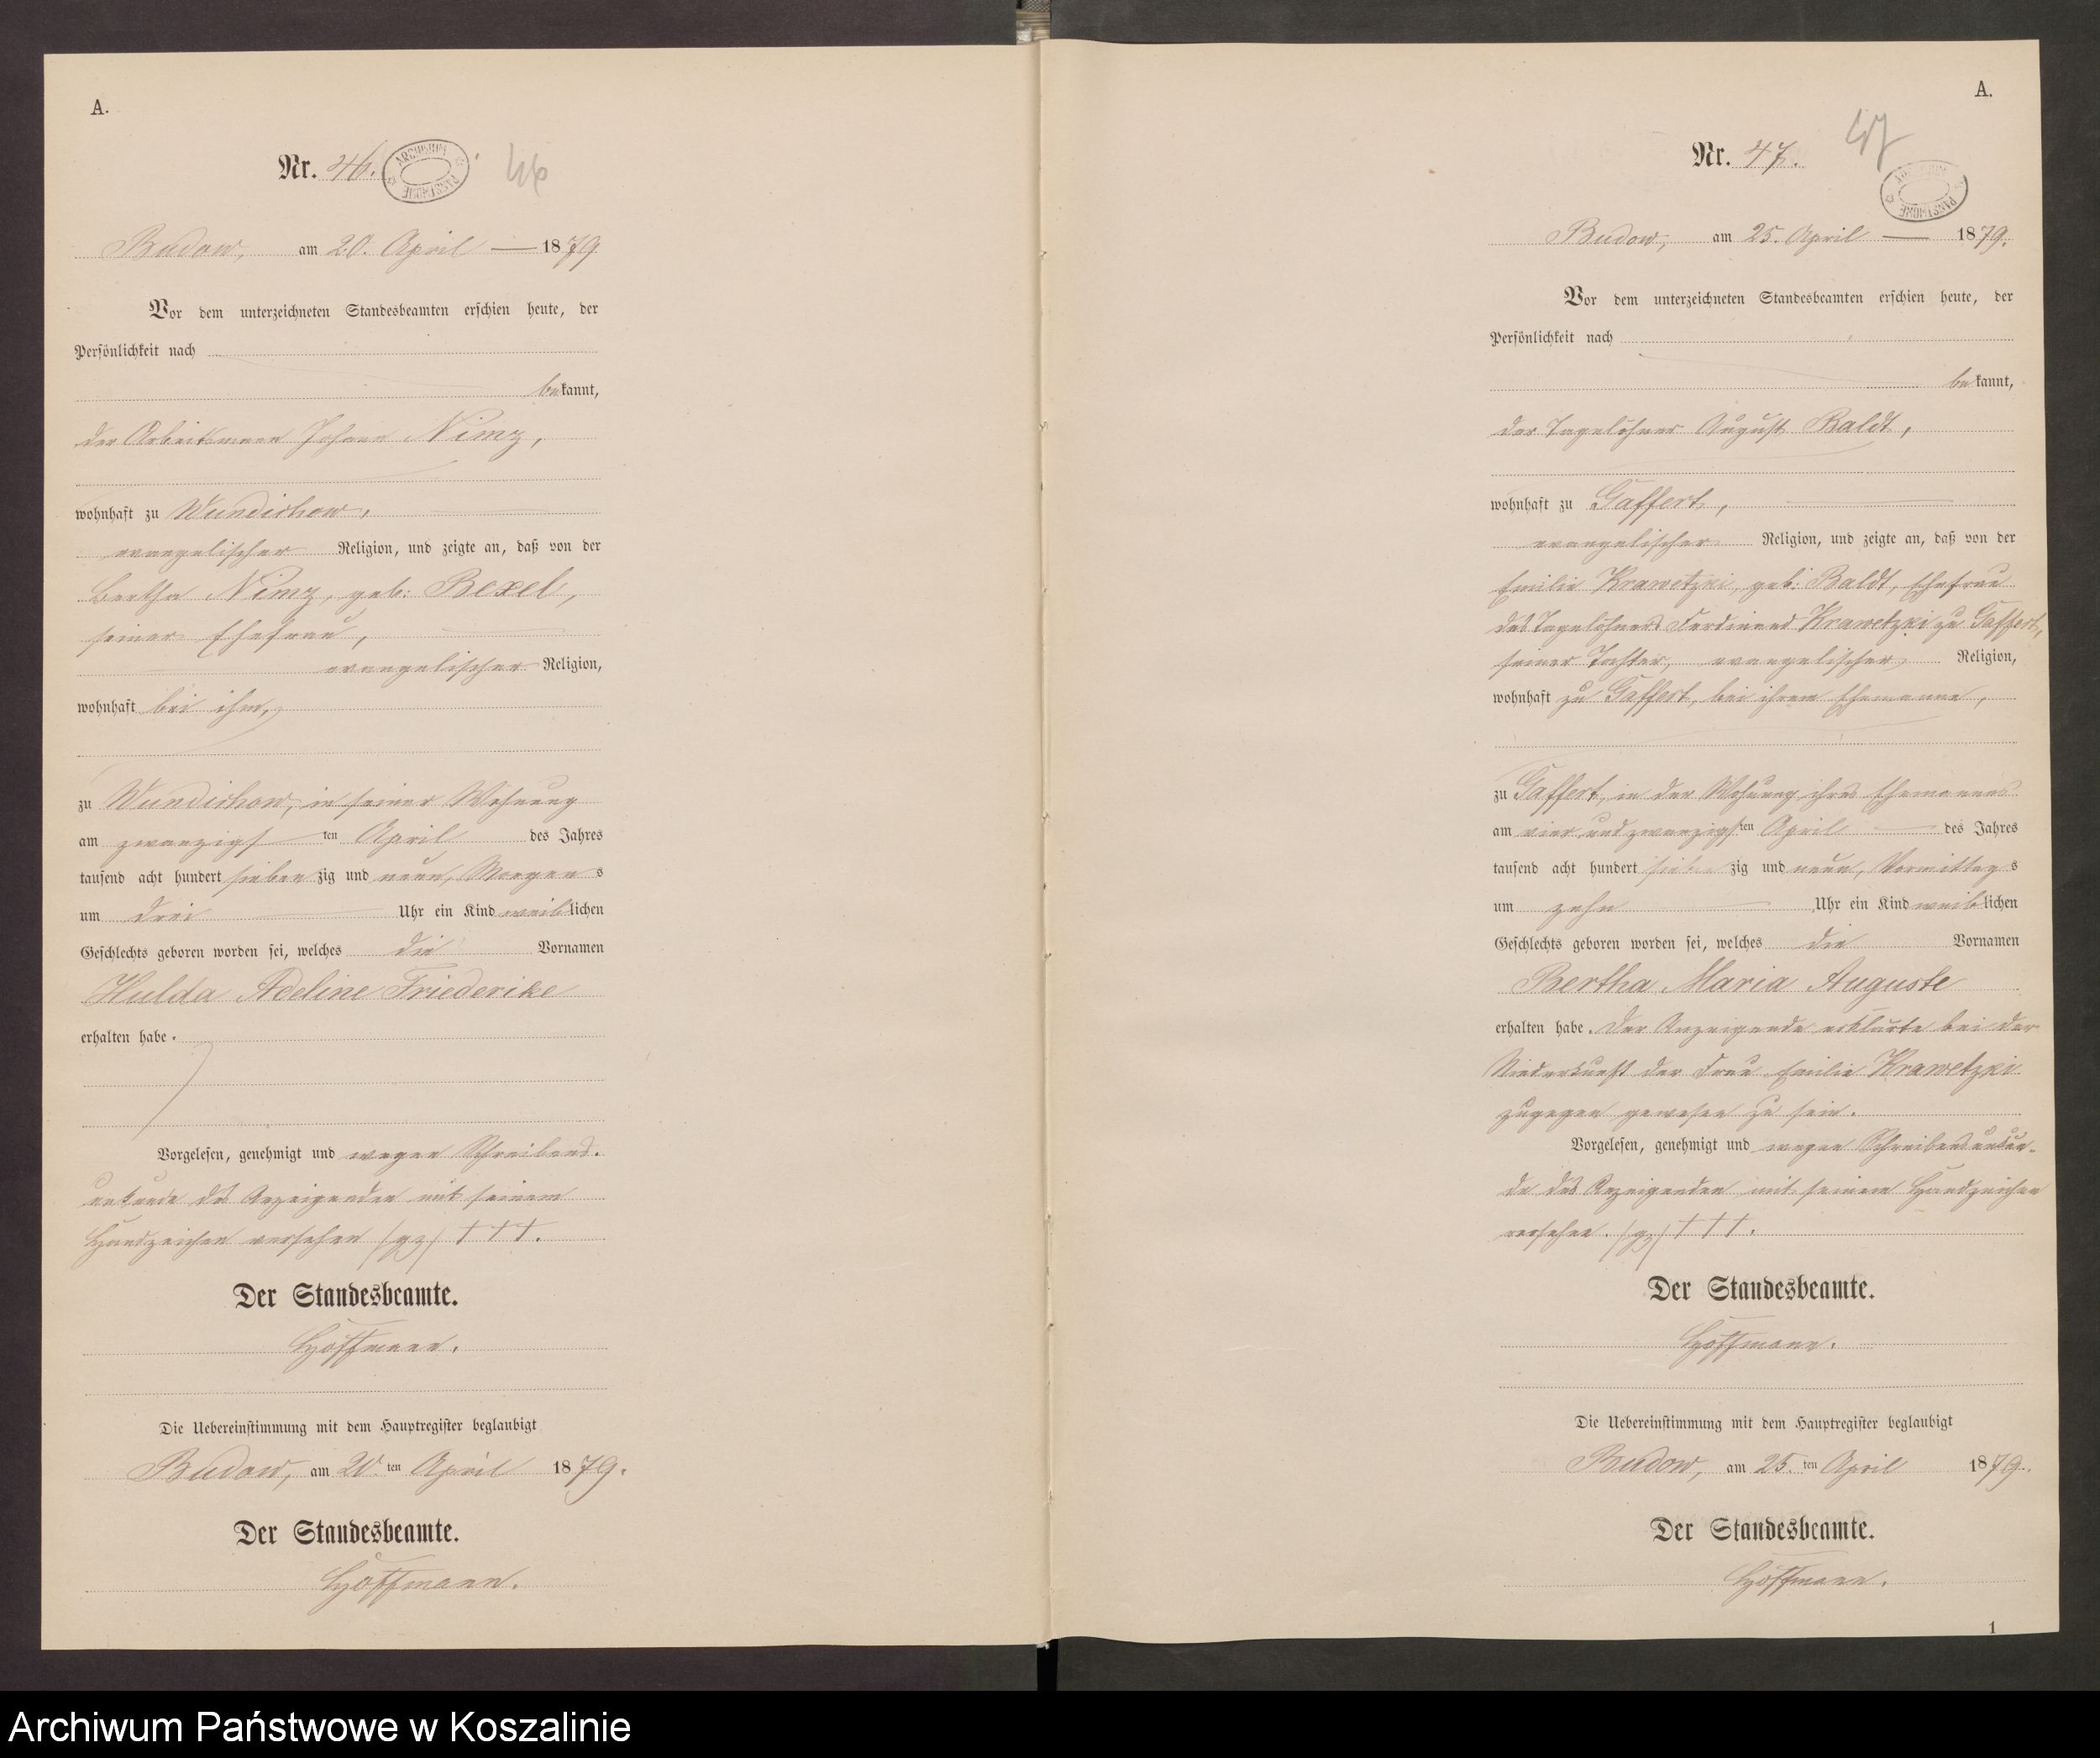 A.
Nr. 46.
ARCHIWUM PAŃSTWOWE
46
Budow, am 20. April 1879
Vor dem unterzeichneten Standesbeamten erschien heute, der
Persönlichkeit nach
bekannt,
der Arbeitsmann Johann Nimz,
wohnhaft zu Wundichow,
evangelischer Religion, und zeigte an, daß von der
Bertha Nimz, geb: Bexel,
seiner Ehefrau,
evangelischer Religion,
wohnhaft bei ihm,
zu Wundichow, in seiner Wohnung
am zwanzigsten April des Jahres
tausend acht hundert siebenzig und neun, Morgens
um drei Uhr ein Kind weiblichen
Geschlechts geboren worden sei, welches die Vornamen
Hulda Adeline Friederike
erhalten habe.
Vorgelesen, genehmigt und wegen Schreibens-
unkunde des Anzeigenden mit seinem
Handzeichen versehen (gz) † † †.
Der Standesbeamte.
Hoffmann.
Die Uebereinstimmung mit dem Hauptregister beglaubigt
Budow, am 20.ten April 1879.
Der Standesbeamte.
Hoffmann.
A.
Nr. 47.
47
ARCHIWUM PAŃSTWOWE
Budow, am 25. April 1879.
Vor dem unterzeichneten Standesbeamten erschien heute, der
Persönlichkeit nach
bekannt,
der Tagelöhner August Baldt,
wohnhaft zu Gaffert,
evangelischer Religion, und zeigte an, daß von der
Emilie Krawetzki, geb: Baldt, Ehefrau
des Tagelöhners Ferdinand Krawetzki zu Gaffert,
seiner Tochter, evangelischer Religion,
wohnhaft zu Gaffert, bei ihrem Ehemanne,
zu Gaffert, in der Wohnung ihres Ehemannes
am vier und zwanzigsten April des Jahres
tausend acht hundert siebenzig und neun, Vormittags
um zehn Uhr ein Kind weiblichen
Geschlechts geboren worden sei, welches die Vornamen
Bertha Maria Auguste
erhalten habe. Der Anzeigende erklärte bei der
Niederkunft der Frau Emilie Krawetzki
zugegen gewesen zu sein.
Vorgelesen, genehmigt und wegen Schreibensunkun-
de des Anzeigenden mit seinem Handzeichen
versehen. (gz) † † †.
Der Standesbeamte.
Hoffmann.
Die Uebereinstimmung mit dem Hauptregister beglaubigt
Budow, am 25.ten April 1879.
Der Standesbeamte.
Hoffmann.
1
Archiwum Państwowe w Koszalinie